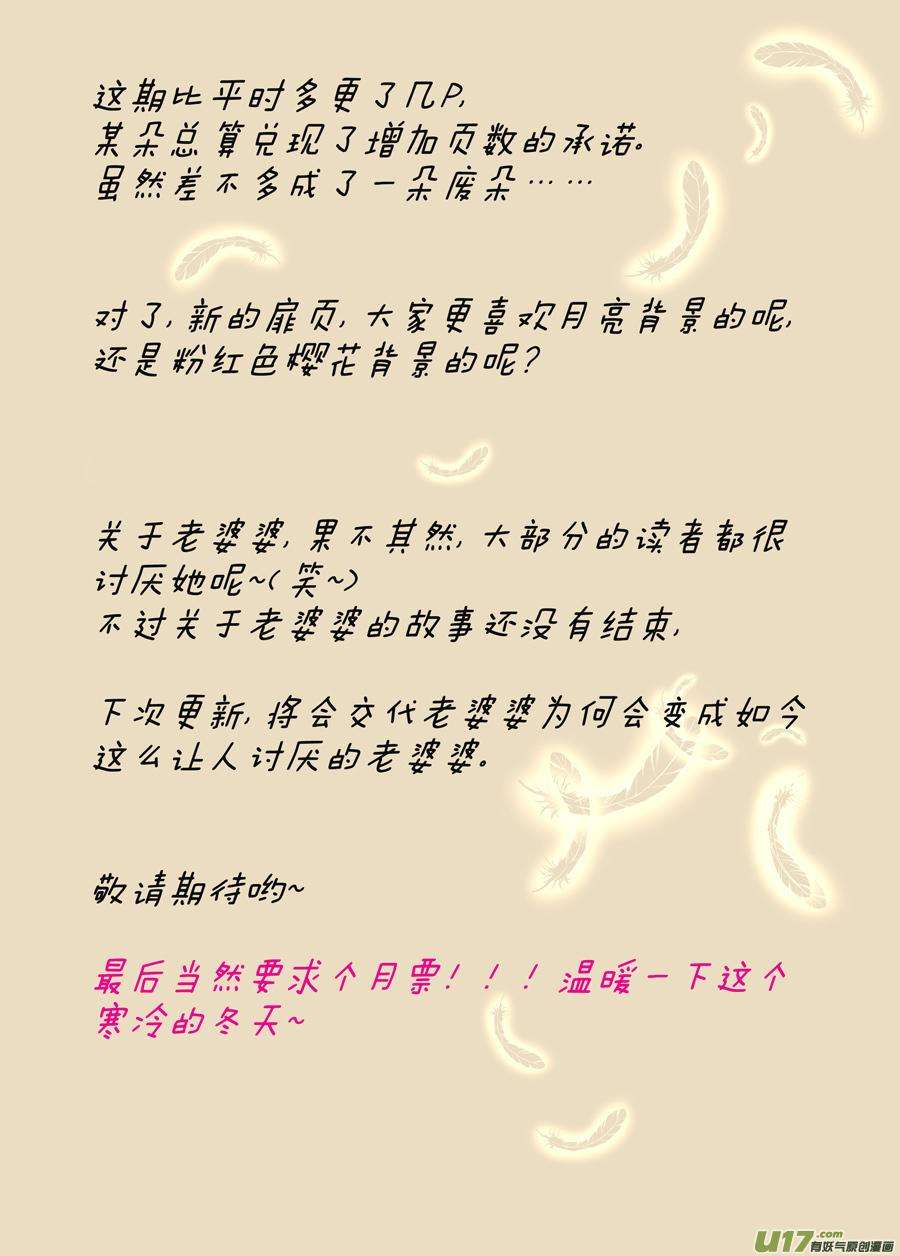 这期比平时多更了几P,
某朵总算兑现了增加页数的承诺。
虽然差不多成了一朵废朵……
对了,新的扉页,大家更喜欢月亮背景的呢,
还是粉红色樱花背景的呢?
关于老婆婆,果不其然,大部分的读者都很
讨厌她呢~(笑~)
不过关于老婆婆的故事还没有结束,
下次更新,将会交代老婆婆为何会变成如今
这么让人讨厌的老婆婆。
敬请期待哟~
最后当然要求个月票!!!温暖一下这个
寒冷的冬天~
U17.com
有妖气原创漫画